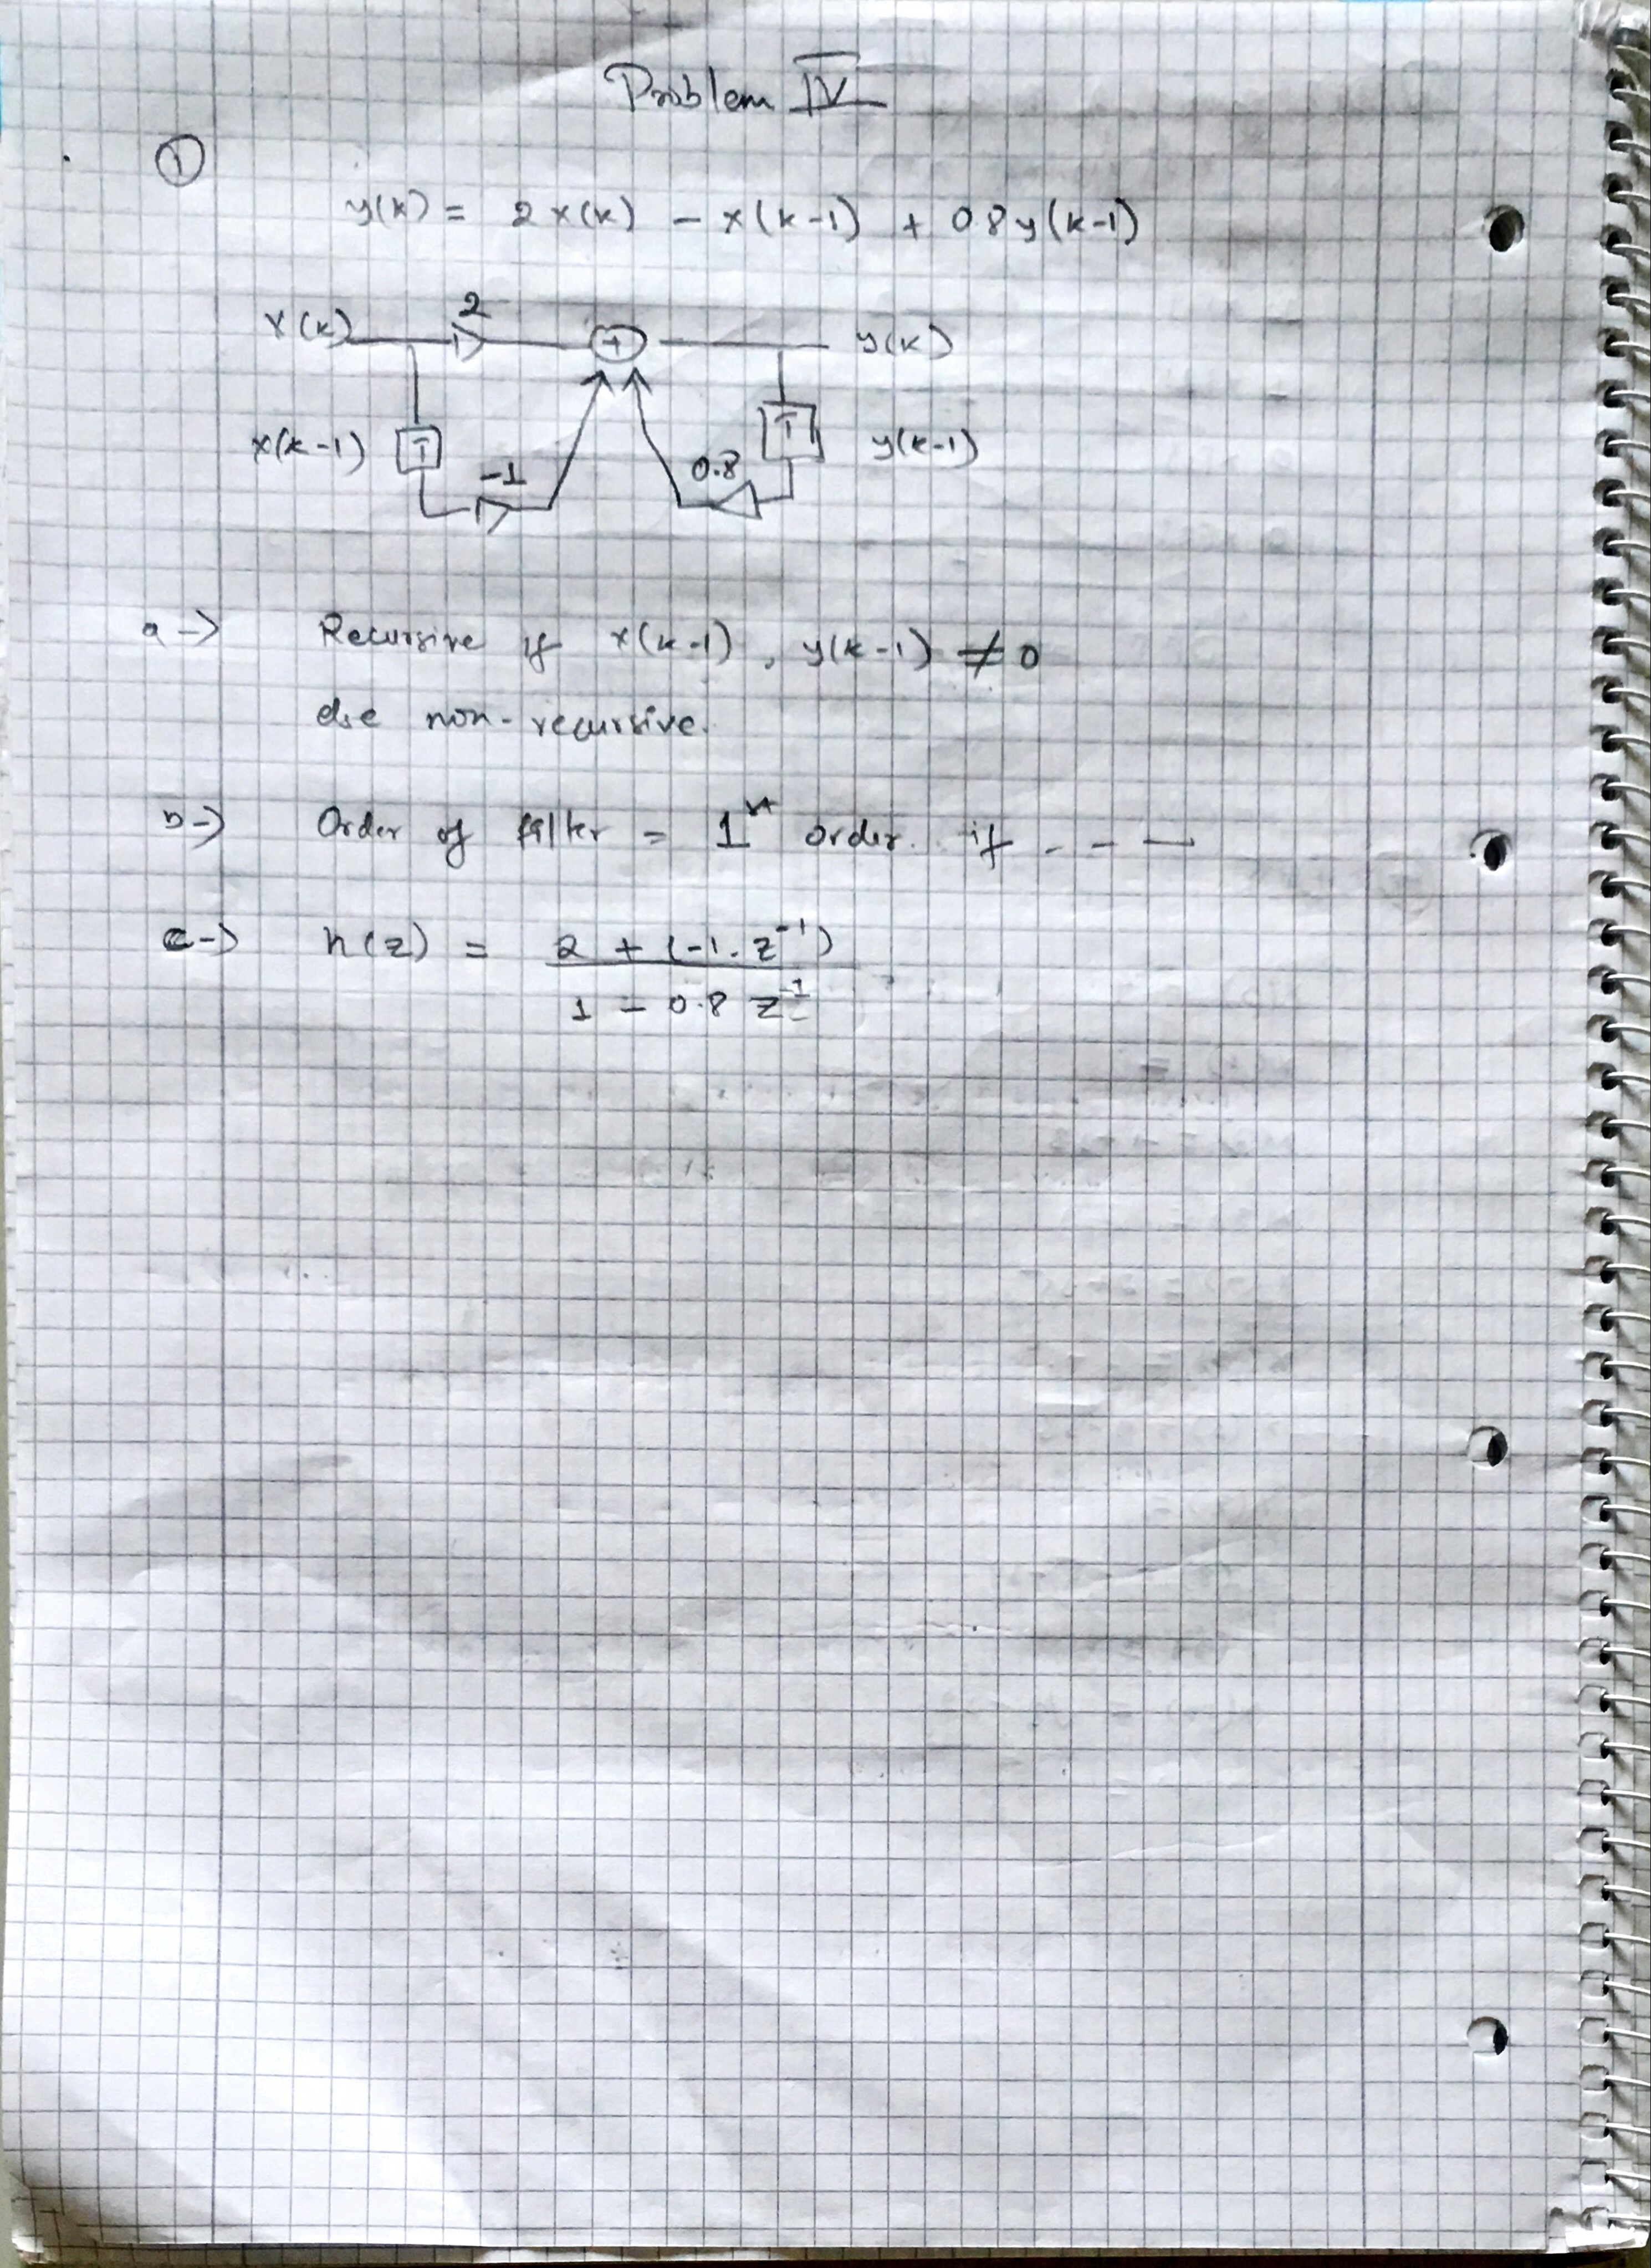 Problem IV
1
y(k) = 2x(k) - x(k-1) + 0.8y(k-1)
2
x(k) + y(k)
x(k-1) T T y(k-1)
-1 0.8
a-> Recursive if x(k-1), y(k-1) ≠ 0
else non-recursive.
b-> Order of filter = 1st order. if - - -
c-> h(z) = 2 + (-1. z^-1)
1 - 0.8 z^-1